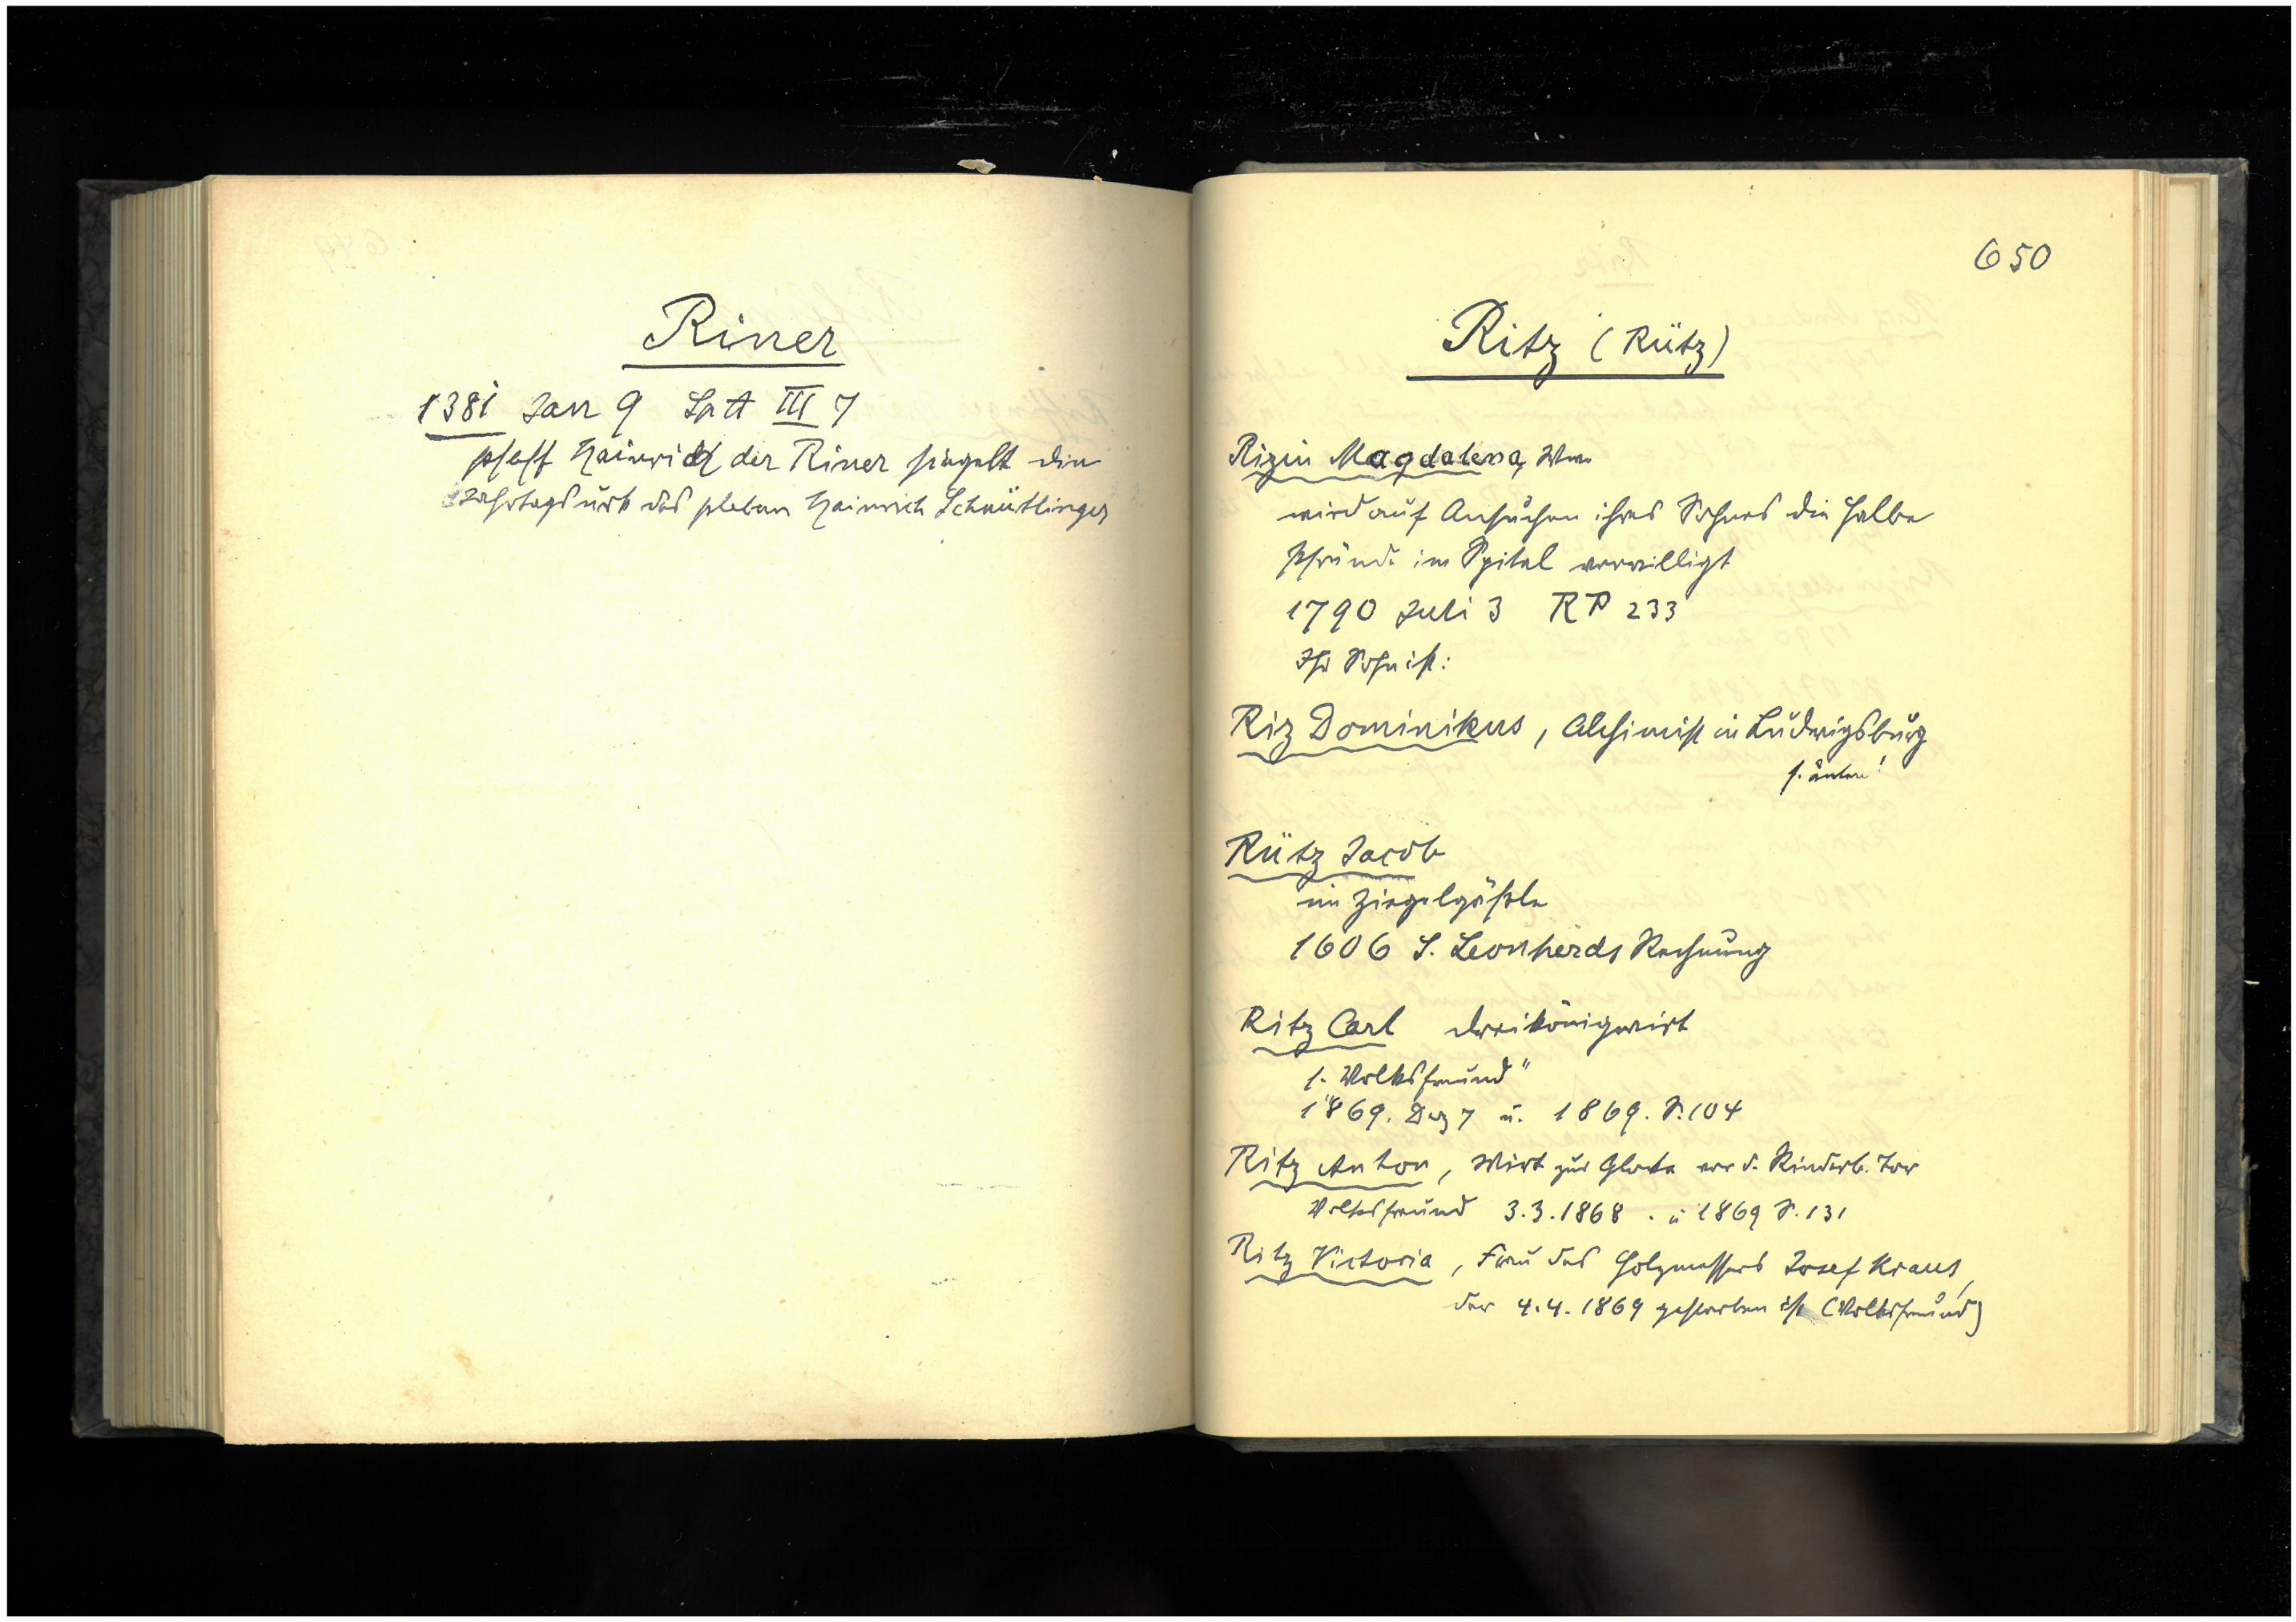 Riner
1381 Jan 9 Spit III 7
pfaff Hainrich der Riner siegelt die
Jahrtagsurk des pleban Hainrich Schnüttlinger
650
Ritz (Rütz)
Rizin Magdalena, Wwe
wird auf Ansuchen ihres Sohnes die halbe
Pfründe im Spital verwilligt
1790 Juli 3 RP 233
Ihr Sohn ist:
Riz Dominikus, Alchimist in Ludwigsburg
s. unten!
Rütz Jacob
im Ziegelgäßle
1606 S. Leonherds Rechnung
Ritz Carl Dreikönigwirt
s. „Volksfreund"
1869. Dez 7 u. 1869. S. 104
Ritz Anton, Wirt zur Glocke vor d. Rinderb. Tor
Volksfreund 3.3.1868. u 1869 S. 131
Ritz Victoria, Frau des Holzmessers Josef Kraus,
der 4.4.1869 gestorben ist (Volksfreund)